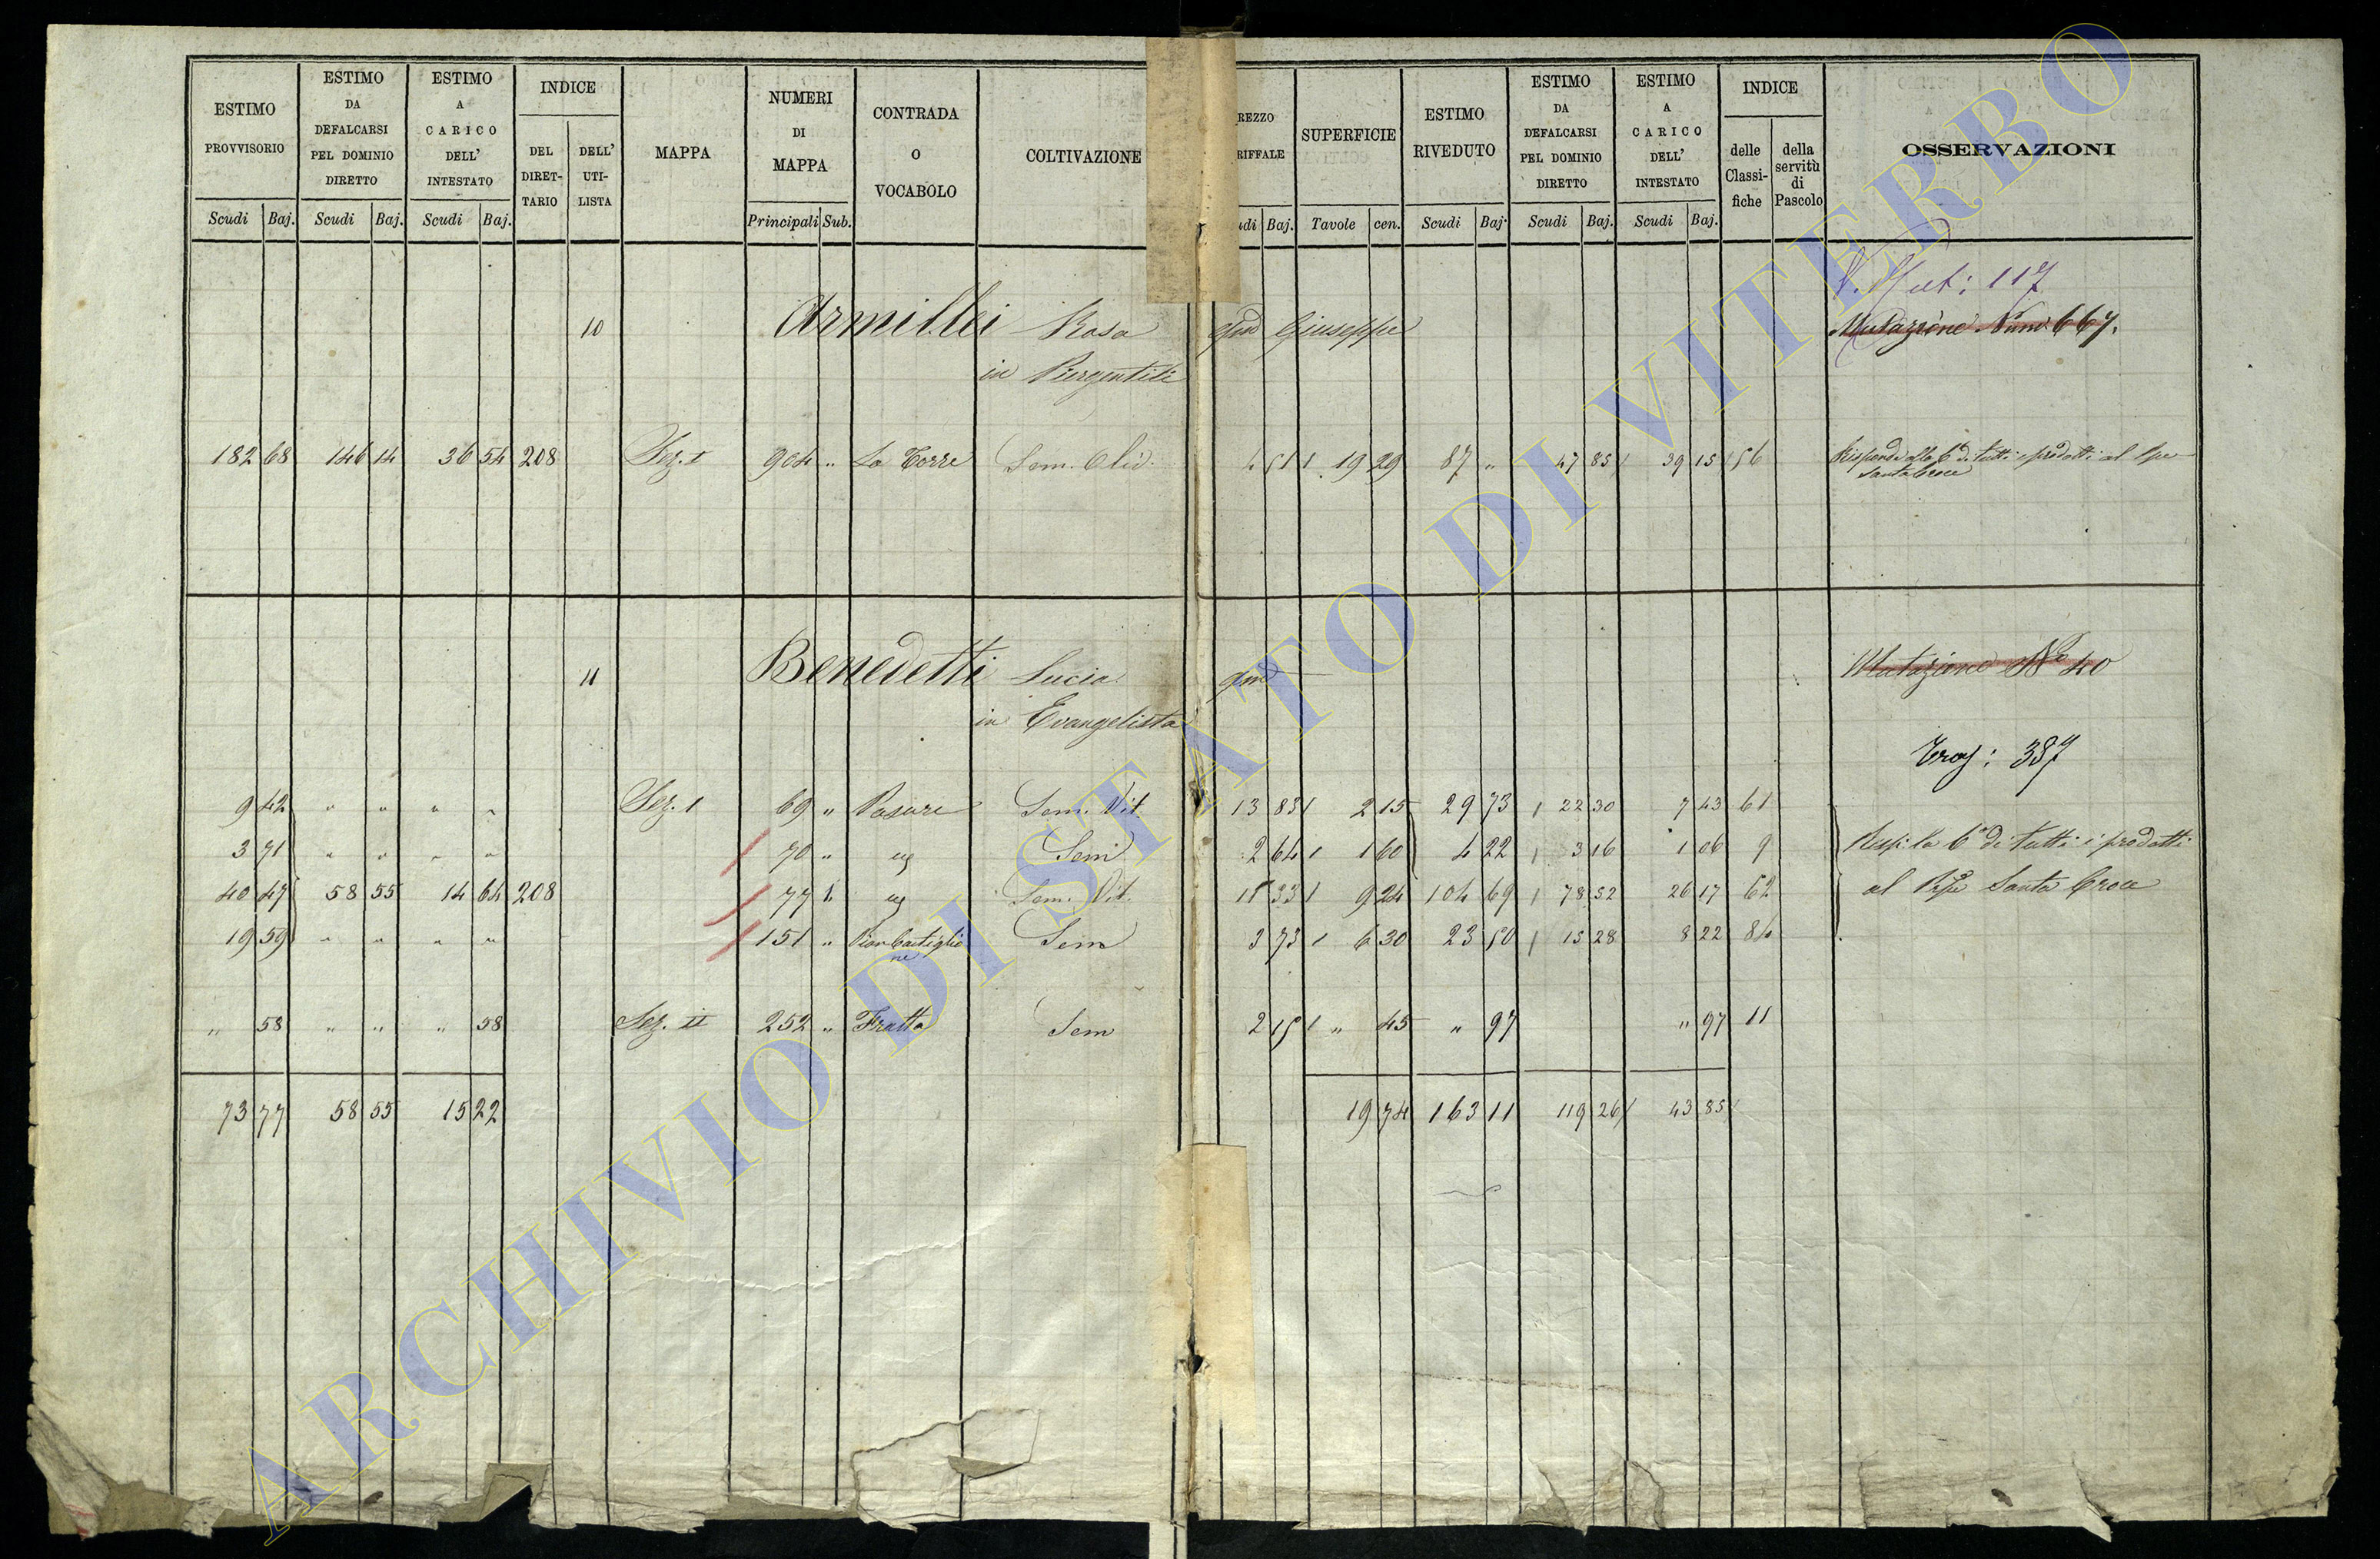 ESTIMO PROVVISORIO
ESTIMO DA DEFALCARSI PEL DOMINIO DIRETTO
ESTIMO A CARICO DELL' INTESTATO
INDICE
DEL DIRET- TARIO
DELL' UTI- LISTA
MAPPA
NUMERI DI MAPPA
CONTRADA O VOCABOLO
COLTIVAZIONE
REZZO RIFFALE
SUPERFICIE
ESTIMO RIVEDUTO
ESTIMO DA DEFALCARSI PEL DOMINIO DIRETTO
ESTIMO A CARICO DELL' INTESTATO
INDICE
delle Classi- fiche
della servitù di Pascolo
OSSERVAZIONI
Scudi Baj. Scudi Baj. Scudi Baj. Principali Sub. udi Baj. Tavole cen. Scudi Baj. Scudi Baj. Scudi Baj.
Mut: 117
10 Armillei Rosa qm Giuseppe Mutazione Num 667.
in Piergentili
182 68 146 14 36 54 208 Sez. I 904 " La Torre Sem. Oliv. 4 51 1 19 29 87 " 47 85 39 15 56 Risponde alla 6ª di tutti i prodotti al
Santa Croce
11 Benedetti Lucia qm Mutazione Nº 40
in Evangelista
Tras: 387
9 42 " " " " Sez. I 69 " Pasure Sem. Vit. 13 83 1 2 15 29 73 22 30 7 43 61
3 71 " " " " 70 " Sem 2 64 1 1 60 4 22 3 16 1 06 9 Risp: la 6ª di tutti i prodotti
40 47 58 55 14 64 208 77 1 Sem. Vit. 11 33 1 9 24 104 69 78 52 26 17 62 al Santa Croce
19 59 " " " " 151 " Pian Castiglio Sem 3 73 1 6 30 23 50 15 28 8 22 84
ne
" 58 " " " 58 Sez. II 252 " Fratta Sem 2 15 1 " 45 " 97 " 97 11
73 77 58 55 15 22 19 74 163 11 119 26 43 85
ARCHIVIO DI STATO DI VITERBO